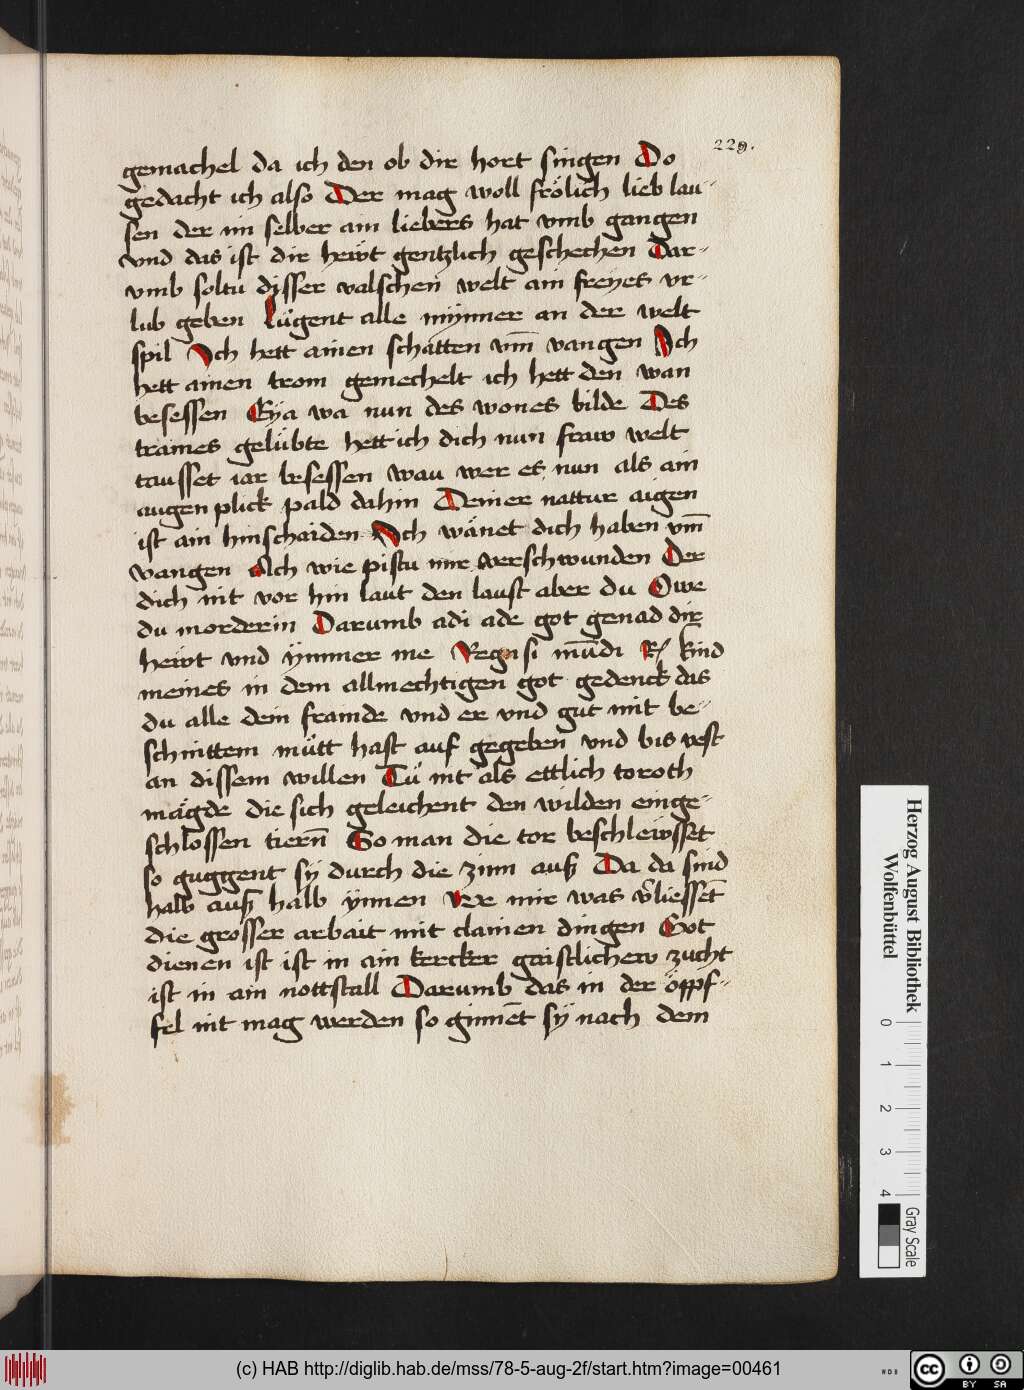 229.
gemachel da ich den ob dir hort singen Do
gedacht ich also Der mag woll frölich lieb lau-
sen der im selber ain liebers hat vmb gangen
vnd das ist dir hewt gentzlich geschechen Dar-
vmb soltu disser valschen welt ain freyes vr-
lub geben Lügent alle mÿnner an der welt
spil Ich hett ainen schatten vm̄ vangen Ich
hett ainen trom gemechelt ich hett den wan
besessen Eÿa wa nun des wones bilde Des
trames gelübte hett ich dich nun fraw welt
tausset iar besessen wau wer es nun als ain
augen plick pald dahin Deiner nattur aigen
ist ain hinschaiden Ich wänet dich haben vm̄
vangen Ach wie pistu mir verschwunden Der
dich nit vor hin laut den laust aber du Owe
du morderin Darumb adi ade got genad dir
hewt vnd ÿmmer me Regn si mūdi R kind
meines in dem allmechtigen got gedenck das
du alle dein frainde vnd er vnd gut mit be-
schnittem mütt hast auf gegeben vnd bis vest
an dissem willen Tü nit als ettlich toroth
mägde die sich geleichent den wilden einge-
schlossen tiern̄ So man die tor beschlewsset
so guggent sÿ durch die zinn auß Da da sind
halb auß halb ÿnnen We mir was v̄liessēt
die grosser arbait mit clainen dingen Got
dienen ist ist in ain kercker gaistlichew zucht
ist in ain nottstall Darumb das in der öppf-
fel nit mag werden so ginnēt sÿ nach dem
Herzog August Bibliothek
Wolfenbüttel
0 1 2 3 4
Gray Scale
(c) HAB http://diglib.hab.de/mss/78-5-aug-2f/start.htm?image=00461
WDB
cc BY SA